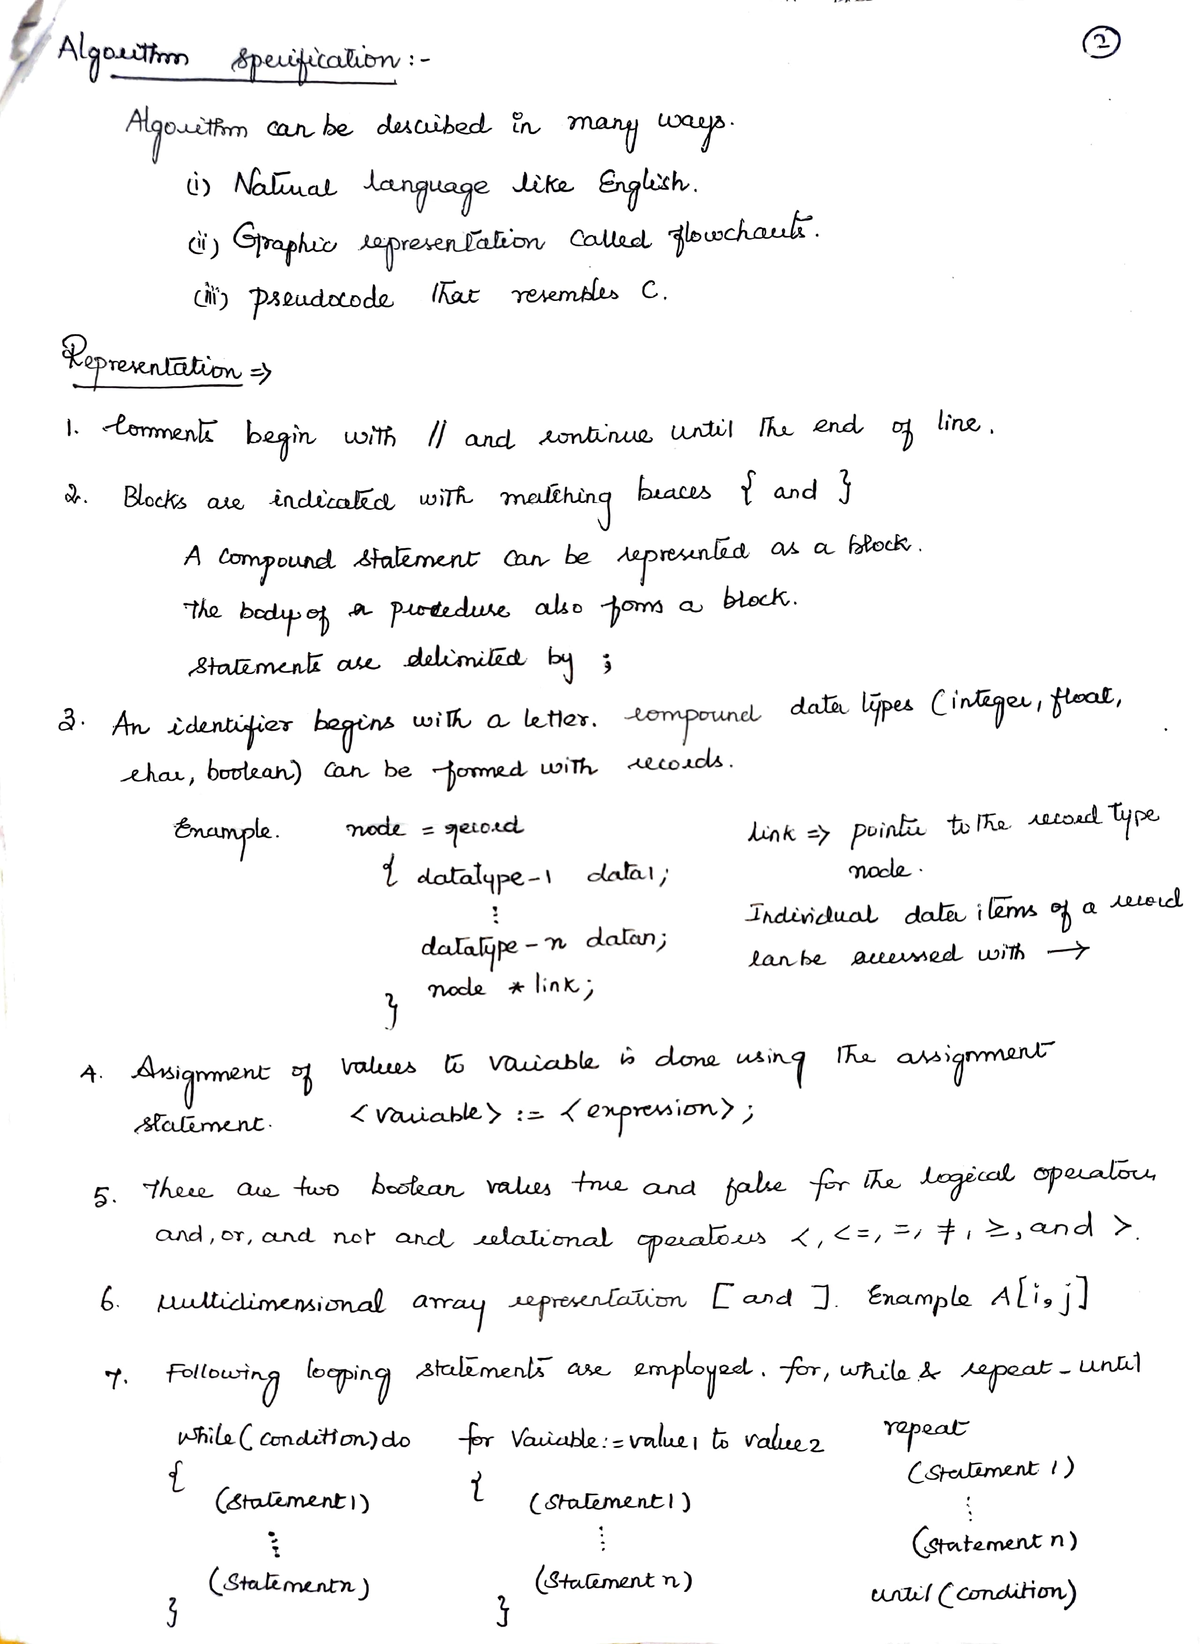 2
Algorithm specification :-
Algorithm can be described in many ways.
(i) Natural language like English.
(ii) Graphic representation called flowcharts.
(iii) pseudocode that resembles C.
Representation ⇒
1. Comments begin with // and continue until the end of line.
2. Blocks are indicated with matching braces { and }
A compound statement can be represented as a block.
The body of a procedure also forms a block.
Statements are delimited by ;
3. An identifier begins with a letter. compound data types (integer, float,
char, boolean) can be formed with records.
Example. node = record
{ datatype-1 data1;
⋮
datatype-n datan;
node * link;
}
link ⇒ pointer to the record type
node.
Individual data items of a record
can be accessed with →
4. Assignment of values to variable is done using the assignment
statement. <variable> := <expression>;
5. There are two boolean values true and false for the logical operators
and, or, and not and relational operators <, <=, =, ≠, ≥, and >.
6. Multidimensional array representation [ and ]. Example A[i, j]
7. Following looping statements are employed. for, while & repeat-until
while (condition) do
{
(Statement1)
⋮
(Statementn)
}
for Variable:=value1 to value2
{
(Statement1)
⋮
(Statement n)
}
repeat
(Statement 1)
⋮
(Statement n)
until (condition)